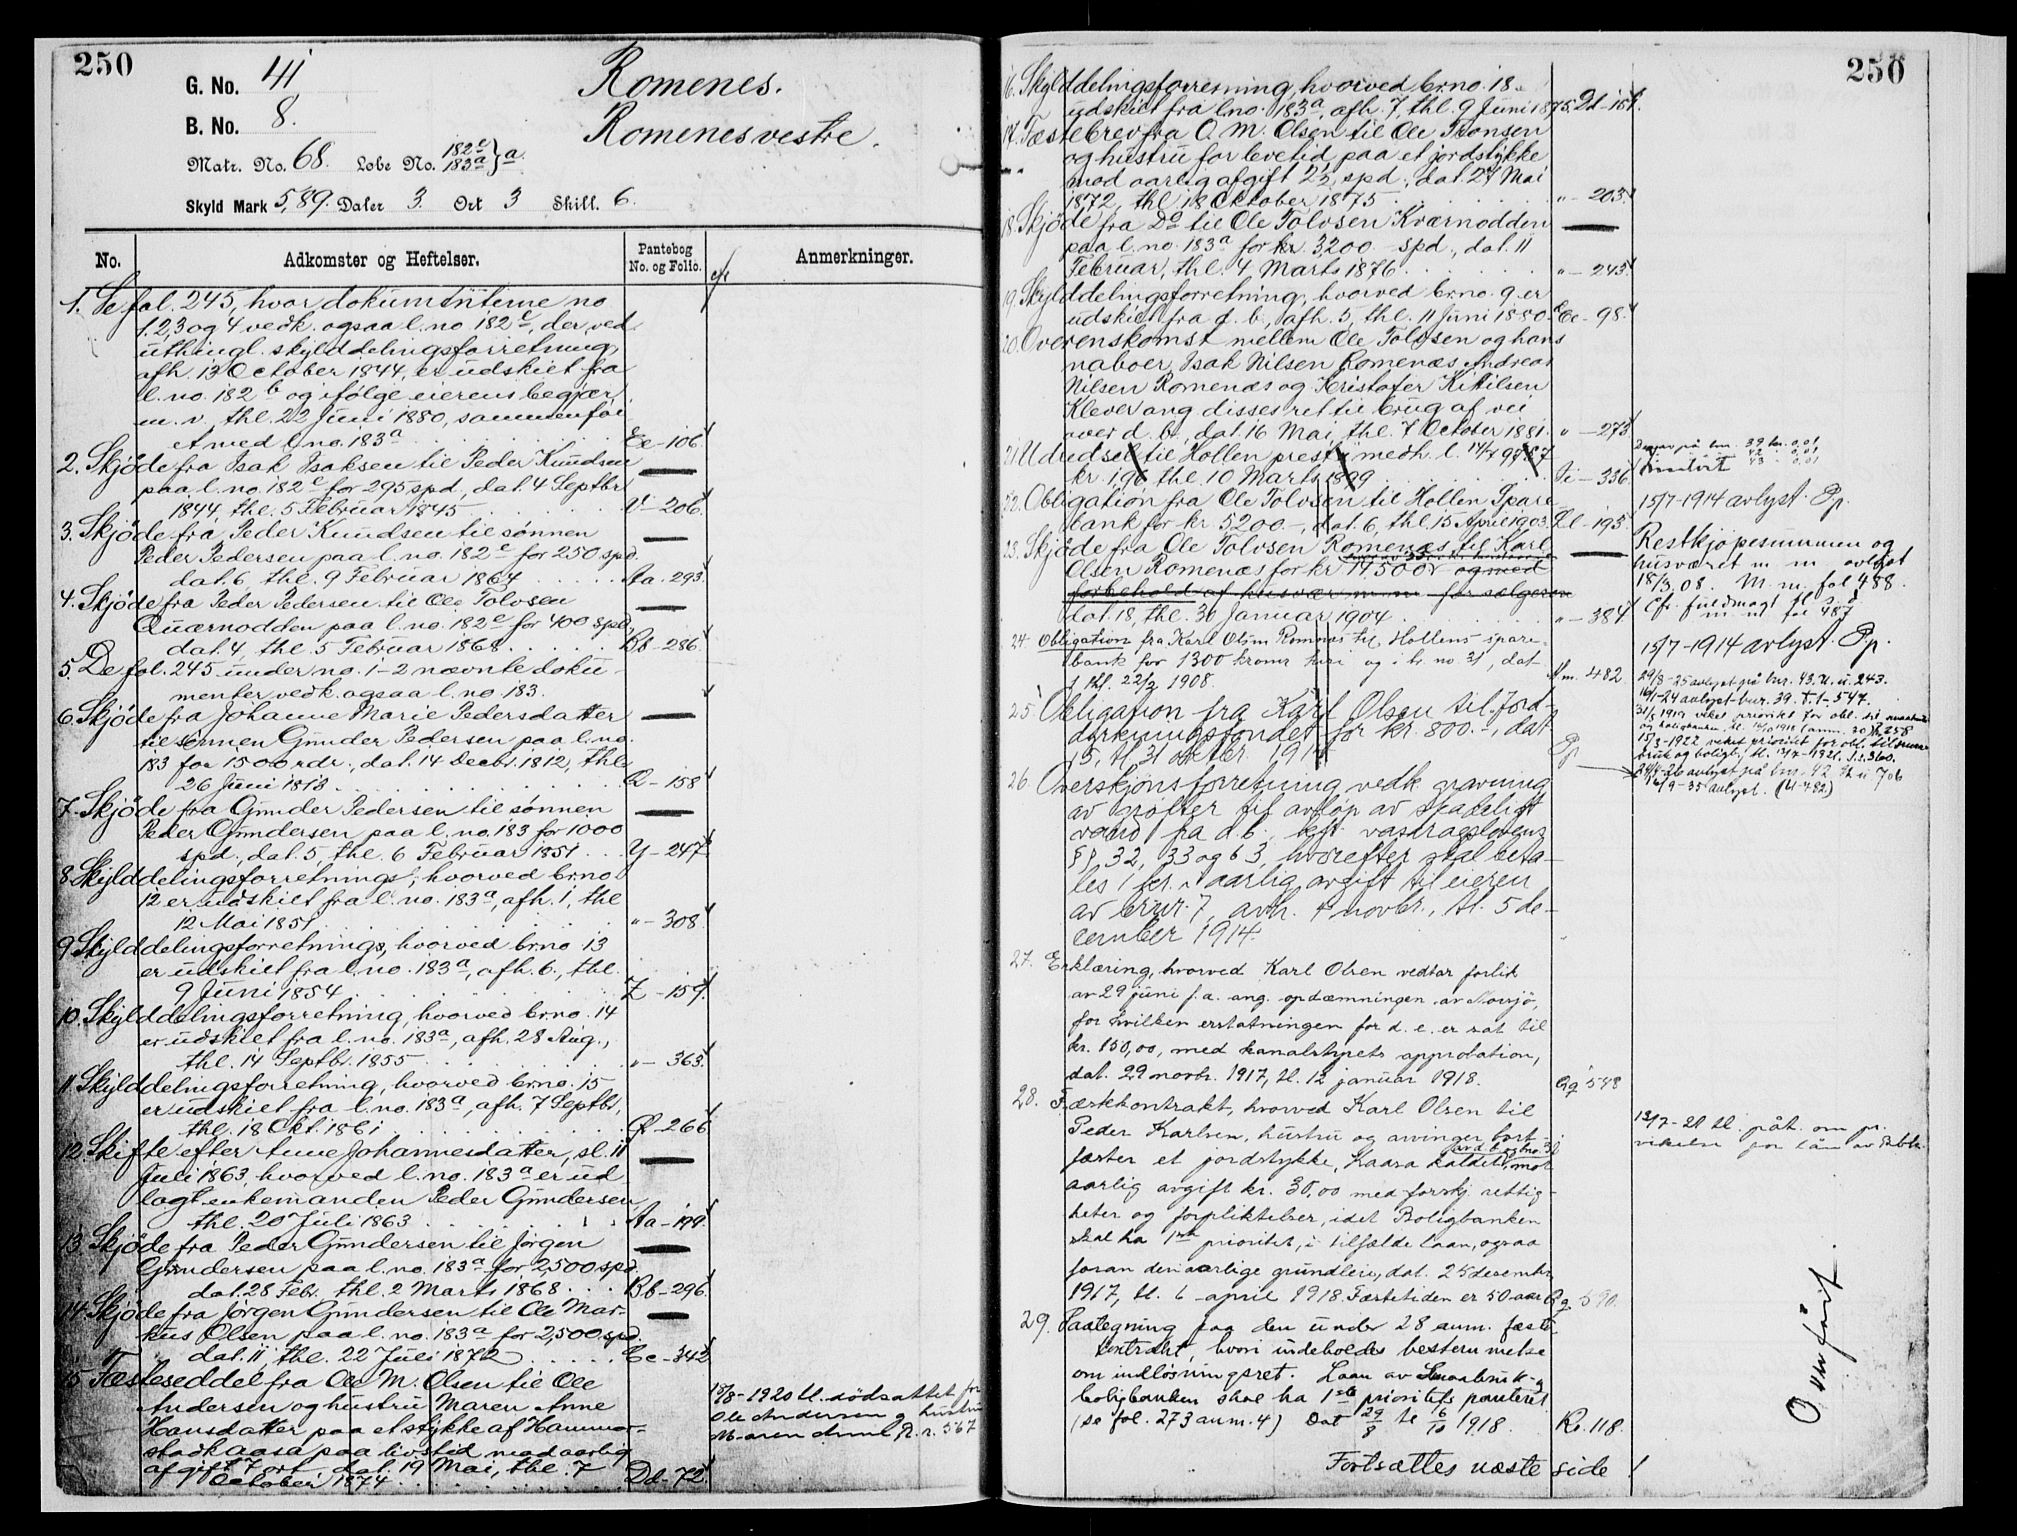 250
G. No. 41
B. No. 8.
Matr. No. 68. Løbe No. 182c 183a } a.
Skyld Mark 5,89. Daler 3. Ort 3 Skill. 6.
Romenes.
Romenes vestre.
No. Adkomster og Heftelser. Pantebog No. og Folio. Anmerkninger.
1. Se fol. 245, hvor dokumenterne no
1.2,3 og 4 vedk. ogsaa l. no 182c, der ved
uthingl. skylddelingsforretning
afh. 13 October 1844, er udskilt fra
l. no. 182 b og ifølge eierens begjær
m. v. thl. 22 Juni 1880, sammenføi
et med l. no. 183a Ee-106.
2. Skjöde fra Isak Isaksen til Peder Knudsen
paa l. no. 182c for 295 spd, dat. 4 Septbr
1844, thl. 5 Februar 1845 V-206.
3. Skjöde fra Peder Knudsen til sønnen
Peder Pedersen paa l. no. 182c for 250 spd.
dat. 6, thl. 9 Februar 1864 Aa-293.
4. Skjöde fra Peder Pedersen til Ole Tolvsen
Quærnodden paa l. no. 182c for 400 spd,
dat. 4, thl. 5 Februar 1868 Bb-286.
5. De fol. 245 under no. 1-2 nævnte doku-
menter vedk. ogsaa l. no. 183.
6. Skjöde fra Johanne Marie Pedersdatter
til sønnen Gunder Pedersen paa l. no.
183 for 1500 rdr., dat. 14 Decbr. 1812, thl.
26 Juni 1813 Q-158
7. Skjöde fra Gunder Pedersen til sønnen
Peder Gundersen paa l. no. 183 for 1000
spd., dat. 5, thl. 6 Februar 1851 Y-247.
8. Skylddelingsforretnings, hvorved br.no
12 er udskilt fra l. no. 183a, afh. 1, thl
12 Mai 1851 "-308
9 Skylddelingsforretnings, hvorved br.no 13
er udskilt fra l. no. 183a, afh. 6., thl.
9 Juni 1854 Z-159.
10. Skylddelingsforretning, hvorved br.no. 14
er udskilt fra l. no. 183a, afh. 28 Aug.,
thl. 14 Septbr. 1855 "-363.
11. Skylddelingsforretning, hvorved br.no. 15
er udskilt fra l. no. 183a, afh. 7 Septbr,
thl. 18 Okt. 1861 -266
12. Skifte efter Anne Johannesdatter, sl. 11
Juli 1863, hvorved l. no. 183a er ud
lagt enkemanden Peder Gundersen,
thl. 20 Juli 1863 Aa-199.
13. Skjöde fra Peder Gundersen til Jørgen
Gundersen paa l. no. 183a for 2,500 spd.
dat. 28 Febr. thl. 2 Marts 1868 Bb-296
14. Skjöde fra Jørgen Gundersen til Ole Mar-
kus Olsen paa l. no. 183a for 2,500 spd.
dat. 11, thl. 22 Juli 1872 Cc-342
15 Fæsteseddel fra Ole M. Olsen til Ole
Andersen og hustru Maren Anne
Hansdatter paa et stykke af Hammer-
stadkaasa paa livstid mod aarlig
afgift 7 ort dat. 19 Mai, thl. 7
October 1874 Dd-72.
15/8-1920 tl. dödsattest for
Ole Andersen og hustru
Maren Anne R. r. 567
250
16. Skylddelingsforretning, hvorved br.no. 18
udskilt fra l.no. 183a, afh. 7, thl. 9 Juni 1875. Dd-151.
17. Fæstebrev fra O. M. Olsen til Ole Tronsen
og hustru for levetid paa et jordstykke
mod aarlig afgift 2½ spd., dat. 27 Mai
1872, thl. 18 Oktober 1875 "-203.
18. Skjöde fra Do til Ole Tolvsen Kværnodden
paa l. no. 183a for kr. 3,200 spd., dat. 11
Februar, thl. 4 Marts 1876 "-245.
19. Skylddelingsforretning, hvorved br.no. 9 er
udskilt fra d. b., afh. 5, thl. 11 Juni 1880 Ee-98.
20. Overenskomst mellem Ole Tolvsen og hans
naboer, Isak Nilsen Romenæs, Andreas
Nilsen Romenæs og Kristofer Kittilsen
Klever ang. disses ret til brug af vei
over d. b., dat. 16 Mai, thl. 7 October 1881. "-273
21 Udredsel til Hollen prest. medh. l. 14/7 97
kr. 1,96 thl. 10 Marts 1899 Ii-336
22. Obligation fra Ole Tolvsen til Hollen Spare
bank for kr. 5200.-, dat. 6, thl. 15 April 1903. Ll-193.
15/7-1914 avlyst. Pp.
23. Skjöde fra Ole Tolvsen Romenæs til Karl
Olsen Romenæs for kr 14500 og med
forbehold af husvær m. m. for sælgeren
dat. 18, thl. 30 Januar 1904 "-384
Restkjøpesummen og
husværet m. m. avlyst
18/3 08. M. m. fol 488.
Cfr. fuldmagt
M. m. fol 487
24. Obligation fra Karl Olsen Romnæs til Hollens spare-
bank for 1300 kroner heri og i br. no. 31, dat
thl. 22/3 1908. M m. 482
15/7-1914 avlyst. Pp.
25. Obligation fra Karl Olsen til Jord-
dyrkningsfondet for kr. 800.-, dat
15, tl 31 oktbr. 1914 Pp
29/3-25 avlyst på bnr. 43. U. u. 243.
16/1-24 avlyst bnr. 39. T. t-547.
26. Overskjønsforretning vedk. gravning
av grøfter til avløp av skadelig
vand fra d. b., kfr. vasdragslovens
§§. 32, 33 og 63, hvorefter skal beta-
les 1 kr. i aarlig avgift til eieren
av br.nr. 7, avh. 4 novbr., tl. 5 de-
cember 1914.
27. Erklæring, hvorved Karl Olsen vedtar forlik
av 29 juni f. a. ang. opdæmningen av Norsjø,
for hvilken erstatningen for d. e. er sat til
kr. 150,00, med kanalstyrets approbation,
dat. 29 novbr. 1917, tl. 12 januar 1918. Qq 548
28. Færkkontrakt, hvorved Karl Olsen til
Peder Karlsen, hustru og arvinger bort-
fæster et jordstykke, Kaasa kaldet, mot
aarlig avgift kr. 30,00 med forskj. rettig-
heter og forpliktelser, idet Boligbanken
skal ha 1ste prioritet, i tilfælde laan, ogsaa
foran den aarlige grundleie, dat. 25 desembr
1917, tl. 6 april 1918. Fæstetiden er 50 aar Qq 590.
29. Paategning paa den under 28 anm. fæste
kontrakt, hvori indeholdes bestemmelse
om indløsningsret. Laan av Smaabruk- og
boligbanken skal ha 1ste prioritets panteret
(se fol. 273 anm. 4) Dat 29/8 tl 6/10 1918. Rr. 118.
Fortsættes næste side !
Overført.